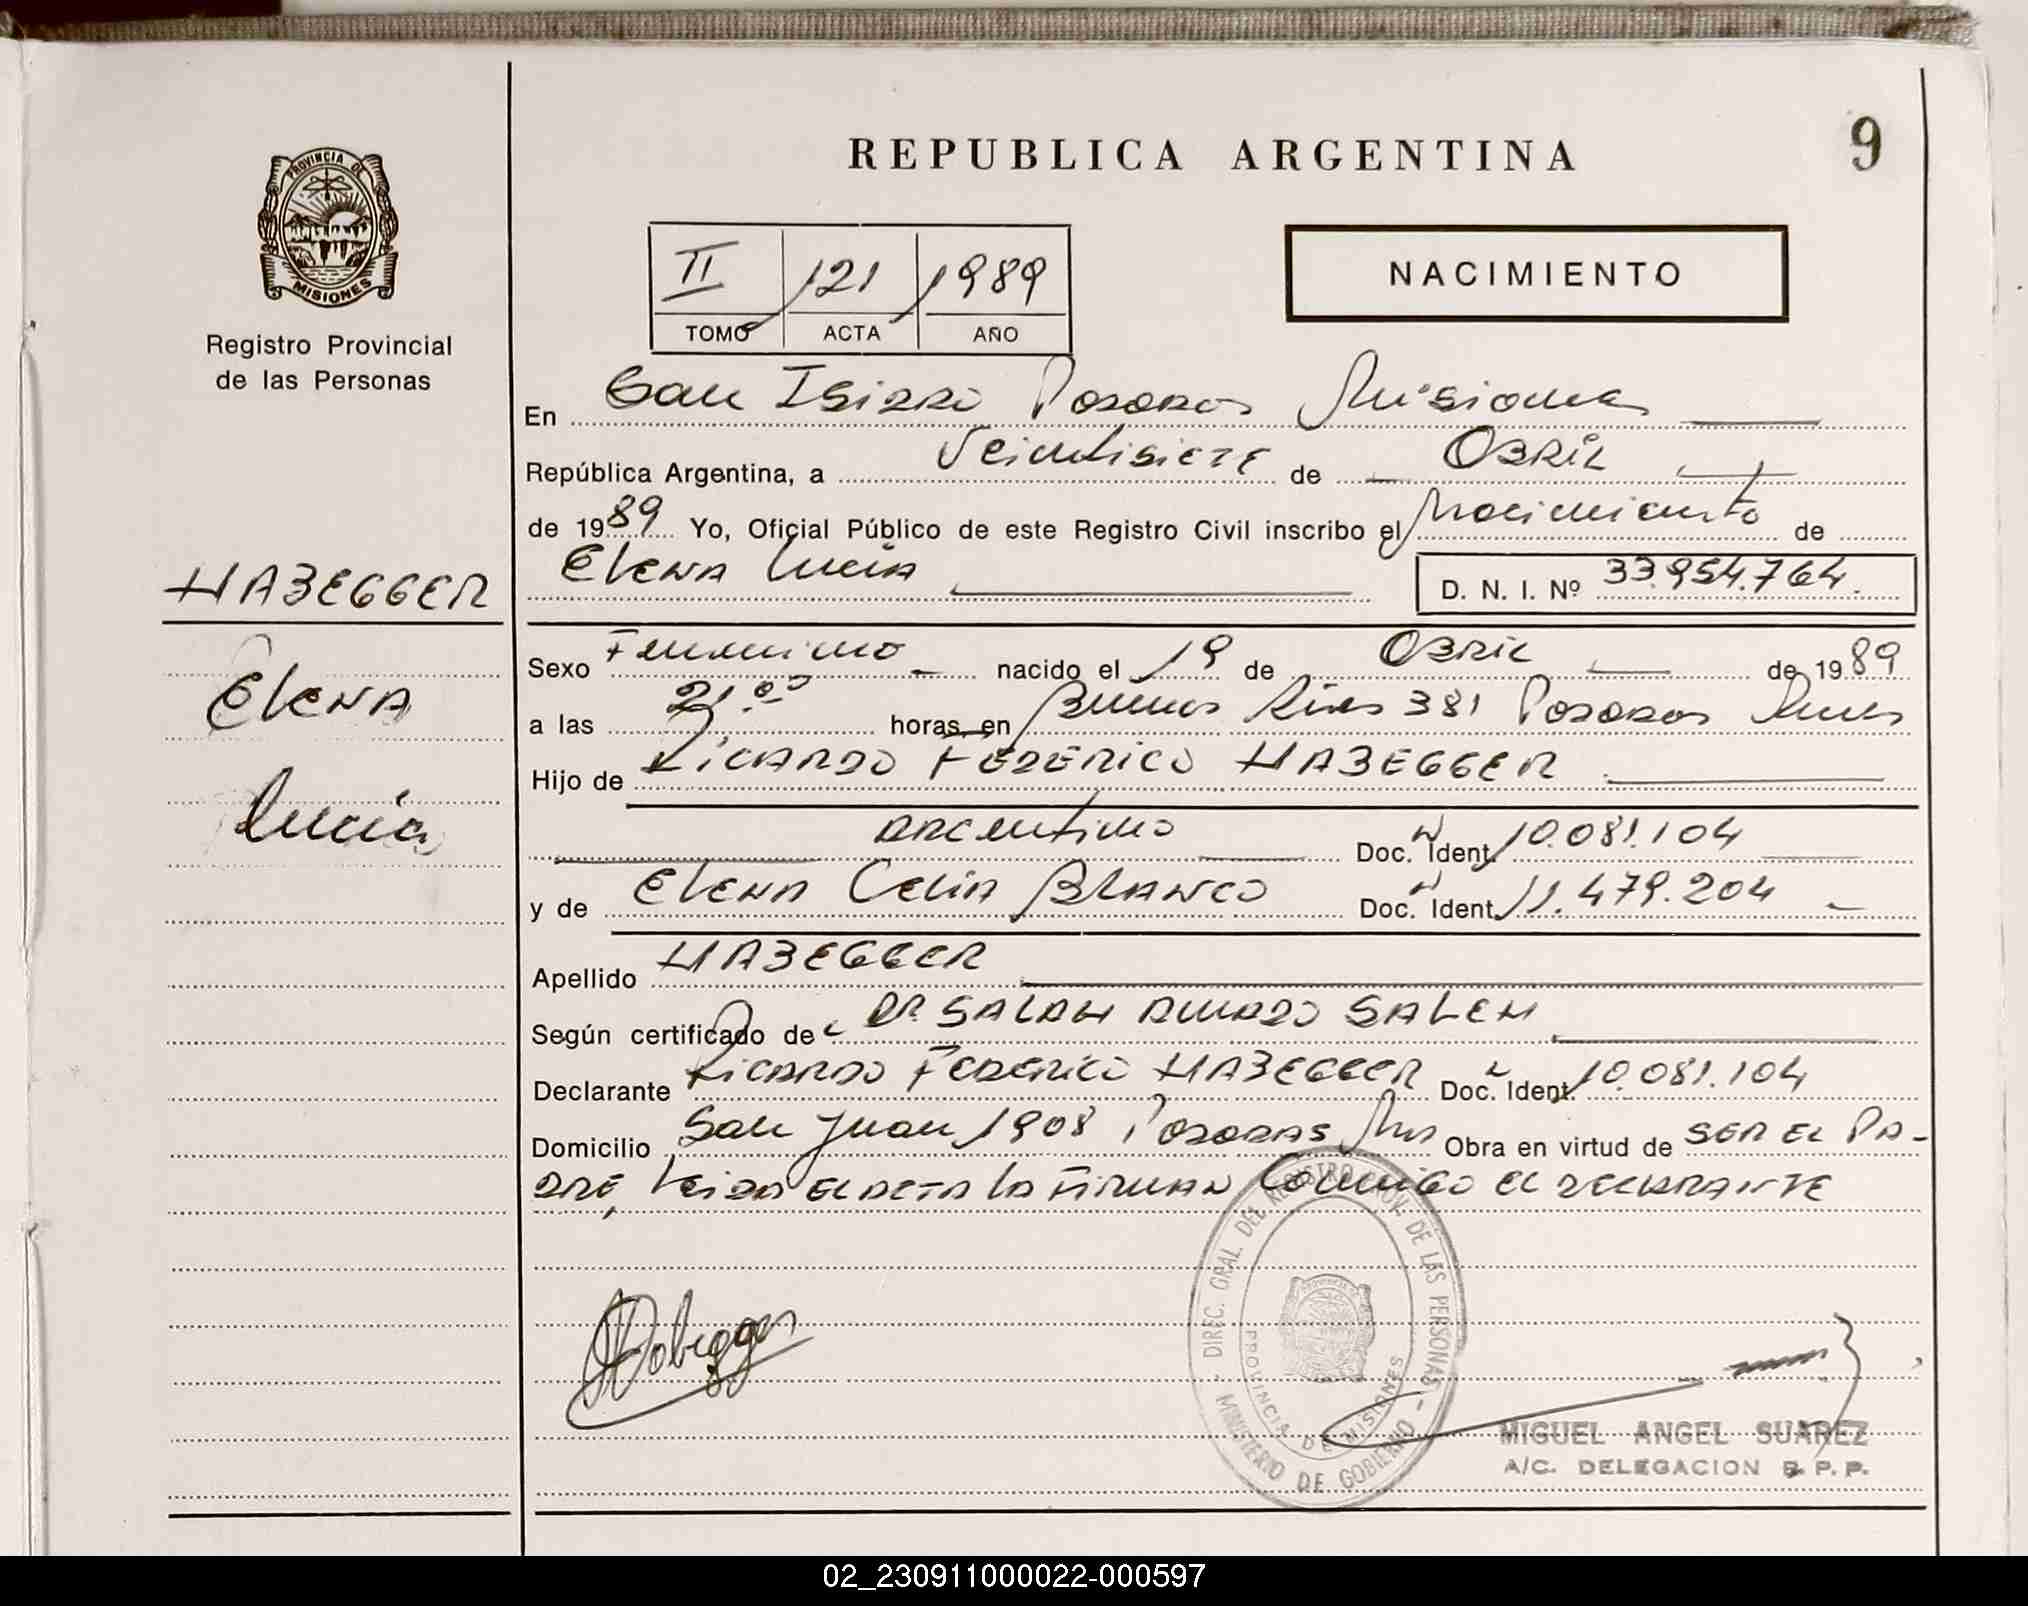 REPUBLICA ARGENTINA
9
PROVINCIA DE
MISIONES
Registro Provincial
de las Personas
II 121 1989
TOMO ACTA AÑO
NACIMIENTO
En San Isidro Posadas Misiones
República Argentina, a Veintisiete de Abril
de 1989 Yo, Oficial Público de este Registro Civil inscribo el Nacimiento de
Elena Lucia D. N. I. Nº 33.954.764.
HABEGGER
Elena
Lucia
Sexo Femenino nacido el 19 de Abril de 1989
a las 21.00 horas en Buenos Aires 381 Posadas Mnes
Hijo de Ricardo Federico HABEGGER
argentino Doc. Ident. 10.081.104
y de Elena Celia Blanco Doc. Ident. 11.479.204
Apellido HABEGGER
Según certificado de Dr. SALAH AMADO SALEM
Declarante Ricardo Federico HABEGGER Doc. Ident. 10.081.104
Domicilio San Juan 1908 Posadas Mns Obra en virtud de SER EL PA-
DRE, Leida el acta la firman conmigo el declarante
Habegger
DIREC. GRAL. DEL REGISTRO PROV. DE LAS PERSONAS
MINISTERIO DE GOBIERNO
PROVINCIA DE MISIONES
MIGUEL ANGEL SUAREZ
A/C. DELEGACION R. P. P.
02_230911000022-000597